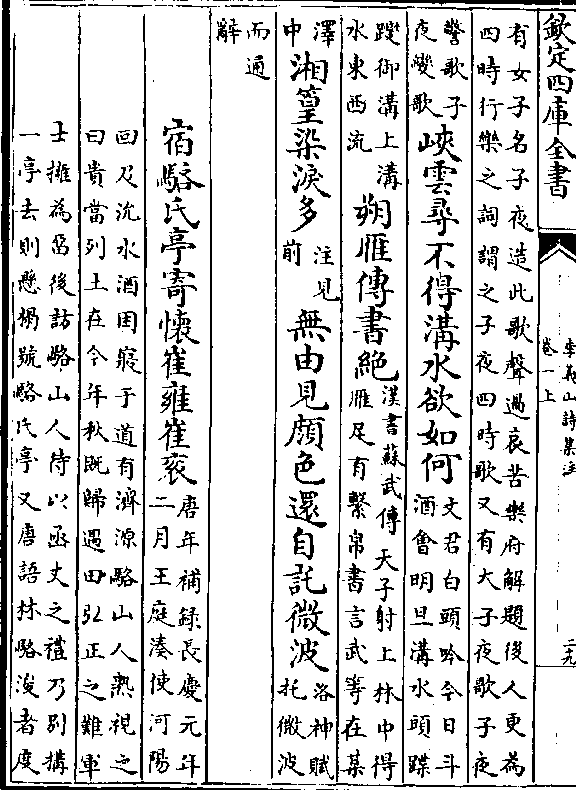 欽定四庫全書
李義山詩集注
卷一上
二九
有女子名子夜造此歌聲過哀苦樂府解題後人更為
四時行樂之詞謂之子夜四時歌又有大子夜歌子夜
警歌子
夜變歌
峽雲尋不得溝水欲如何
文君白頭吟今日斗
酒會明旦溝水頭蹀
躞御溝上溝
水東西流
朔雁傳書絶
漢書蘇武傳天子射上林中得
雁足有繫帛書言武等在某
澤
中
湘篁染淚多
注見
前
無由見顔色還自託微波
洛神賦
托微波
而通
辭
宿駱氏亭寄懷崔雍崔衮
唐年補録長慶元年
二月王庭湊使河陽
回及沇水酒困寢于道有濟源駱山人熟視之
曰貴當列土在今年秋既歸遇田弘正之難軍
士擁為留後訪駱山人待以函丈之禮乃别搆
一亭去則懸榻號駱氏亭又唐語林駱浚者度